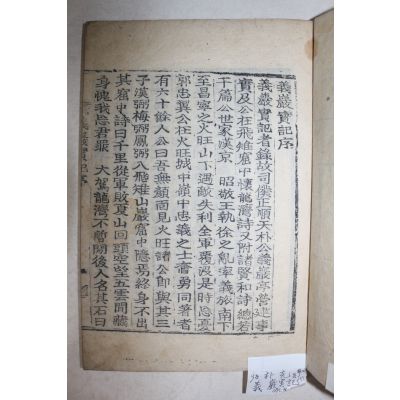 義巖實記序
義巖實記者錄故司僕正順天朴公義巖亭營建事
實及公在飛雉窟中懷龍灣詩又附諸賢和詩總若
千篇公世家漢京 昭敬王執徐之亂率義旅南下
至昌寧之火旺山下遇敵失利全軍覆沒是時忘憂
郭忠翼公在火旺城中嶺中忠義之士奮勇同著者
有六十餘人公曰吾無顔面見火旺諸公卽與其三
子漢弼梅弼鳳弼入飛雉山巖窟中隱焉終身不出
其窟中詩曰千里從軍敗夏山回頭空望五雲間藏
身塊我忘君辱 大駕龍灣不暫閒後人名其石曰
義巖實記序
朴
義巖實記